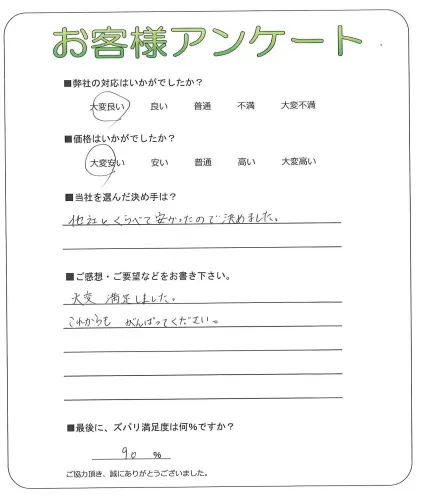 お客様アンケート
■弊社の対応はいかがでしたか？
大変良い 良い 普通 不満 大変不満
■価格はいかがでしたか？
大変安い 安い 普通 高い 大変高い
■当社を選んだ決め手は？
他社とくらべて安かったので決めました。
■ご感想・ご要望などをお書き下さい。
大変 満足しました。
これからも がんばってください。
■最後に、ズバリ満足度は何％ですか？
90 ％
ご協力頂き、誠にありがとうございました。